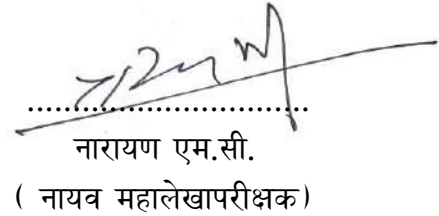 नारायण एम.सी.
( नायव महालेखापरीक्षक)